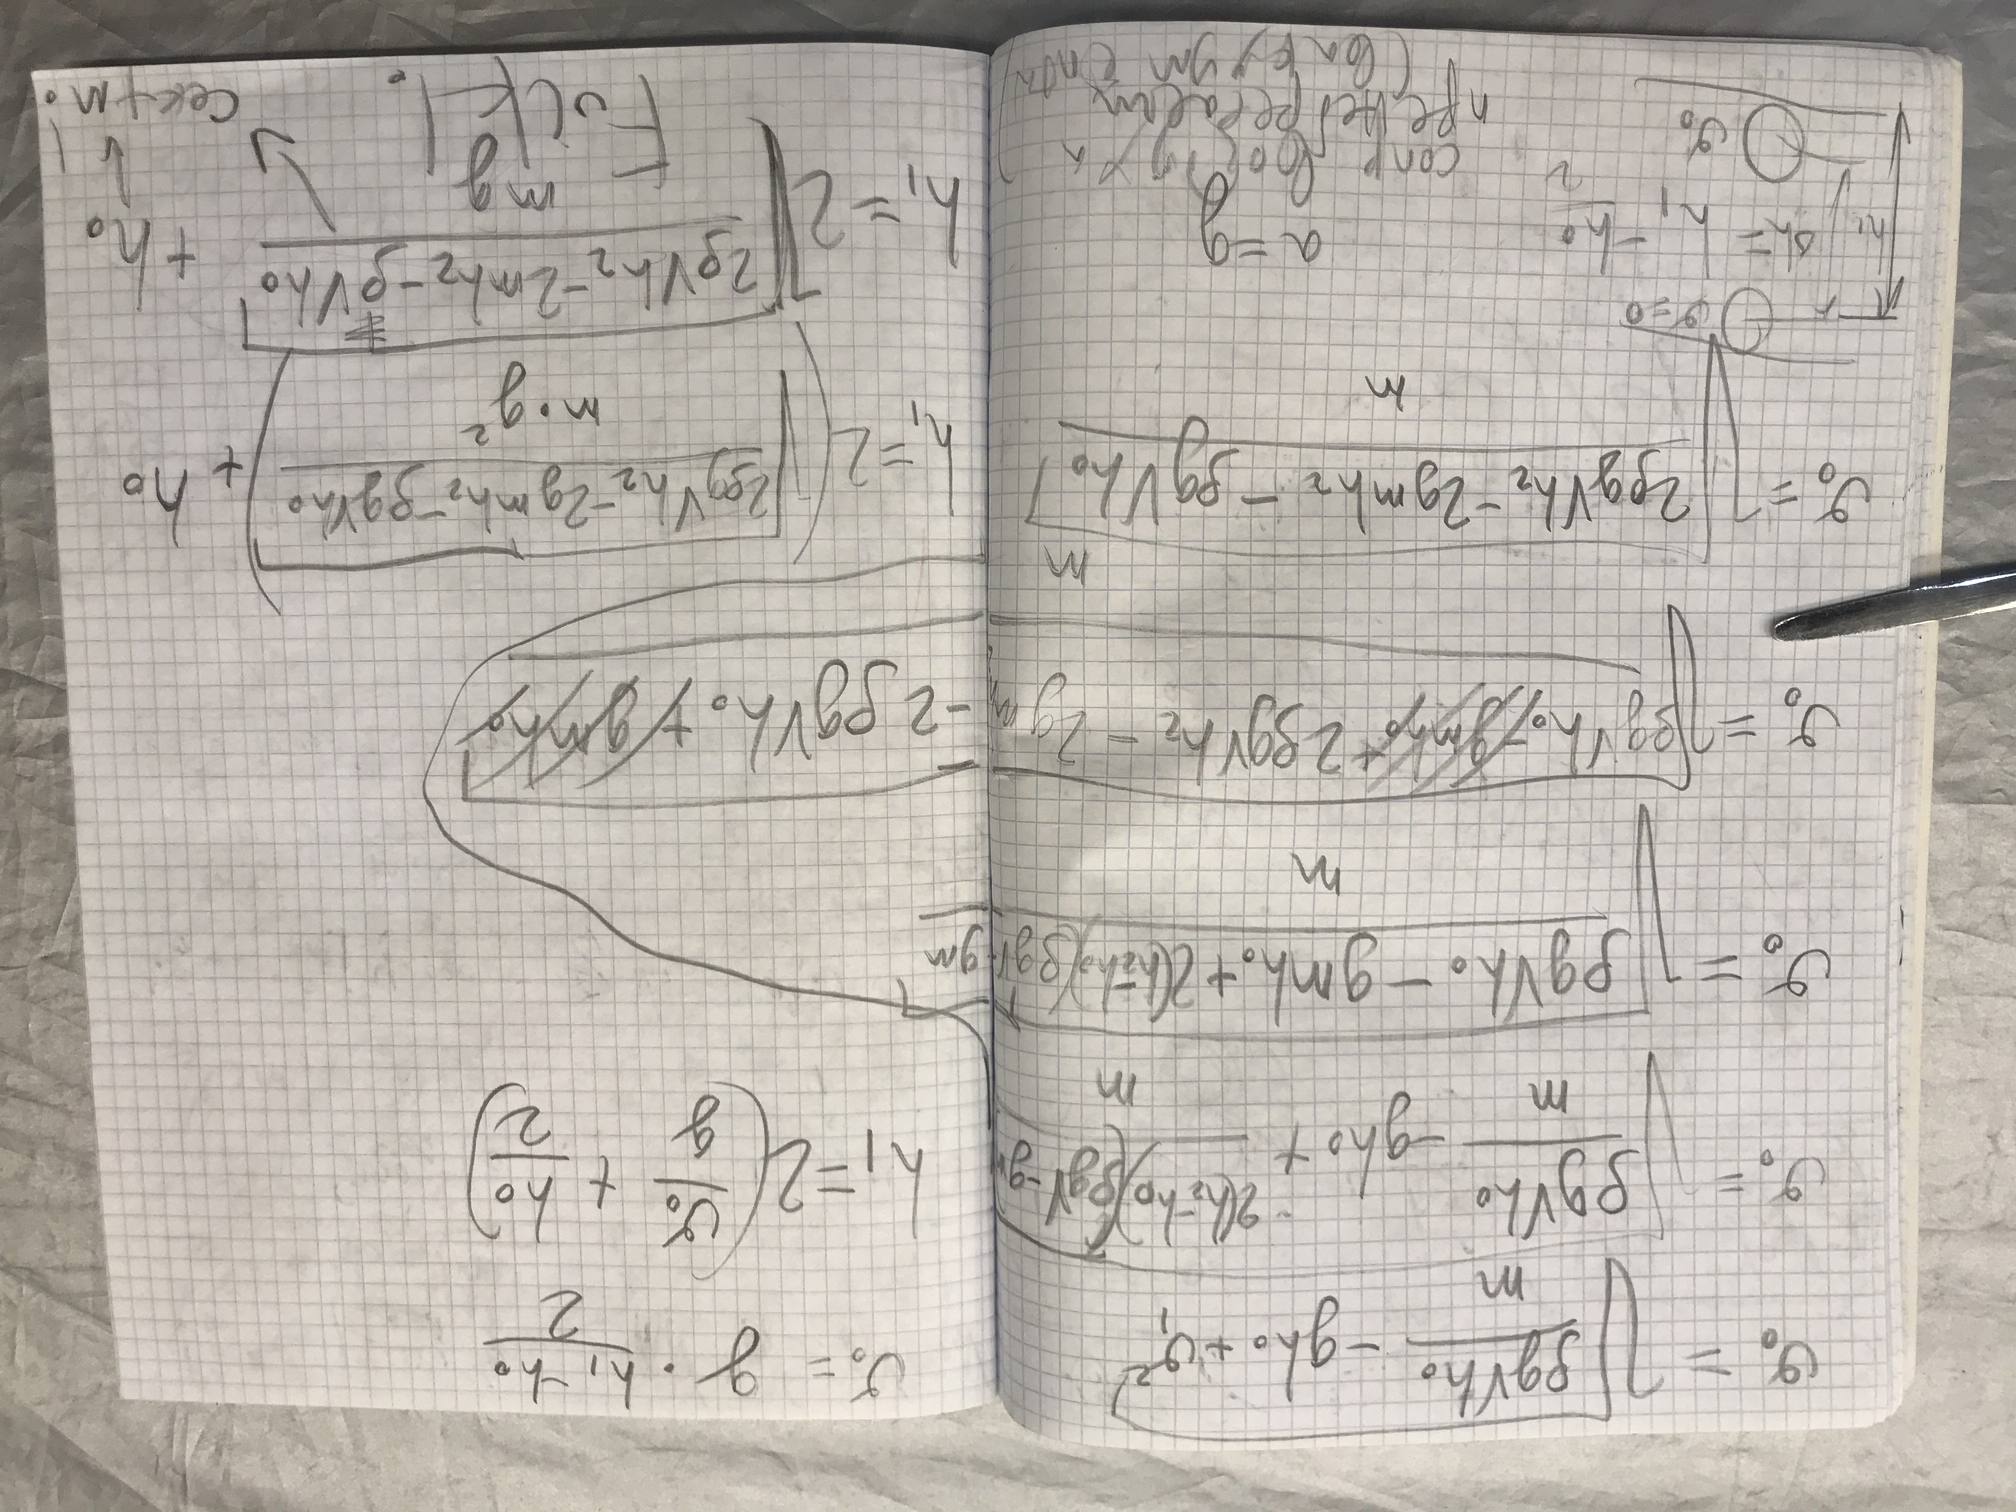 𝜗₀ = √(ρgVh₀/m − gh₀ + 𝜗₁²)
𝜗₀ = √(ρgVh₀/m − gh₀ + 2(h₂−h₀)(ρgV−gm)/m)
𝜗₀ = √((ρgVh₀ − gmh₀ + 2(h₂−h₀)(ρgV−gm)/m)
𝜗₀ = √(ρgVh₀ − gmh₀ + 2ρgVh₂ − 2gmh₂ − 2ρgVh₀ + gmh₀)/m
𝜗₀ = √((2ρgVh₂ − 2gmh₂ − ρgVh₀)/m)
𝜗=0
h₁
Δh = (h₁−h₀)/2
𝜗₀
a=g
(сопр воздуха
пренебрегаем
(вакуум ёпт)
𝜗₀ = g · (h₁−h₀)/2
h₁=2(𝜗₀/g + h₀/2)
h₁=2(√((2ρgVh₂−2gmh₂−ρgVh₀)/(m·g²))) + h₀
h₁=2√((2ρVh₂−2mh₂−ρVh₀)/(mg)) + h₀
Fuck!
сек≠м!